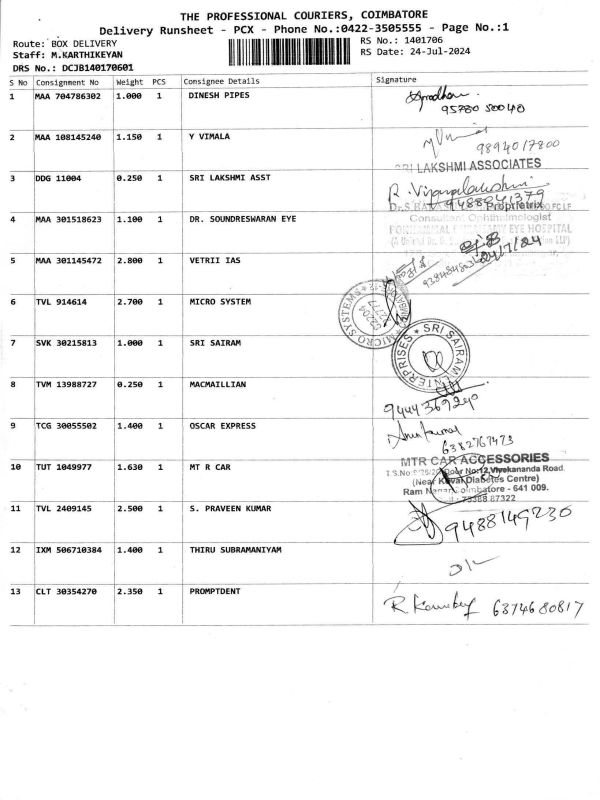 THE PROFESSIONAL COURIERS, COIMBATORE
Delivery Runsheet - PCX - Phone No.:0422-3505555 - Page No.:1
Route: BOX DELIVERY
RS No.: 1401706
Staff: M.KARTHIKEYAN
RS Date: 24-Jul-2024
DRS No.: DCJB140170601
S No Consignment No Weight PCS Consignee Details Signature
1 MAA 704786302 1.000 1 DINESH PIPES
95780 50040
2 MAA 108145240 1.150 1 Y VIMALA
9894017800
SRI LAKSHMI ASSOCIATES
3 DDG 11004 0.250 1 SRI LAKSHMI ASST
R. Vijayalakshmi
9488941379
Proprietrix
4 MAA 301518623 1.100 1 DR. SOUNDRESWARAN EYE
Consultant Ophthalmologist
EYE HOSPITAL
24/7/24
5 MAA 301145472 2.800 1 VETRII IAS
6 TVL 914614 2.700 1 MICRO SYSTEM
MICRO SYSTEMS
7 SVK 30215813 1.000 1 SRI SAIRAM
SRI SAIRAM ENTERPRISES
8 TVM 13988727 0.250 1 MACMAILLIAN
9444369290
9 TCG 30055502 1.400 1 OSCAR EXPRESS
6382767473
10 TUT 1049977 1.630 1 MT R CAR
MTR CAR ACCESSORIES
Door No:12, Vivekananda Road
(Near Kovai Diabetes Centre)
Ram Nagar, Coimbatore - 641 009.
87322
11 TVL 2409145 2.500 1 S. PRAVEEN KUMAR
9488149230
12 IXM 506710384 1.400 1 THIRU SUBRAMANIYAM
13 CLT 30354270 2.350 1 PROMPTDENT
6374680817